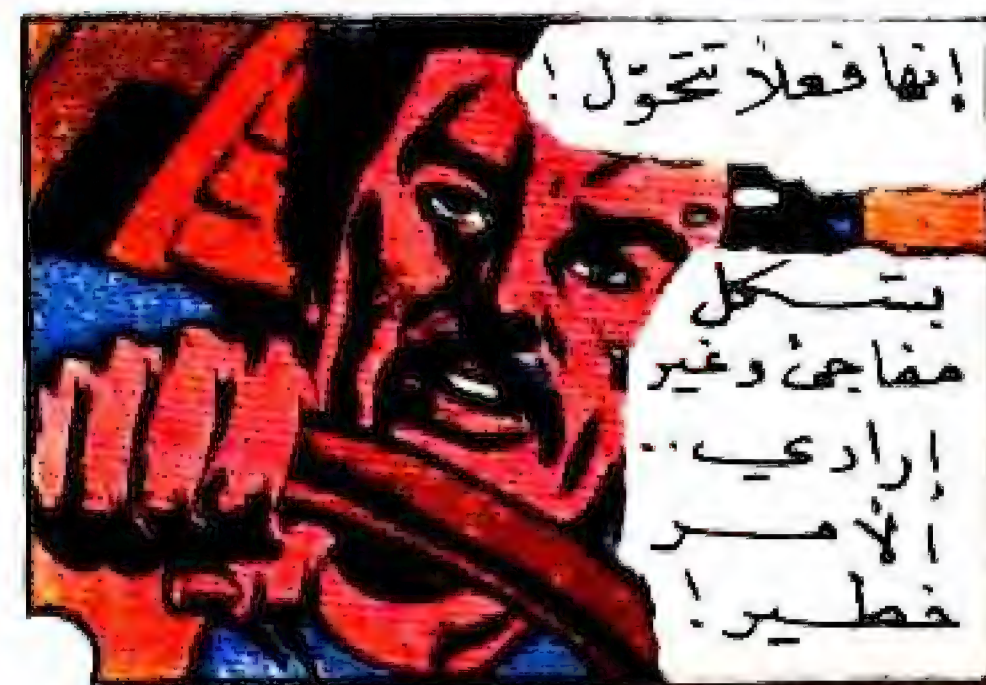 إنها فعلا تتحوّل !
بشكل
مفاجئ وغير
إرادي ..
الأمر
خطير !